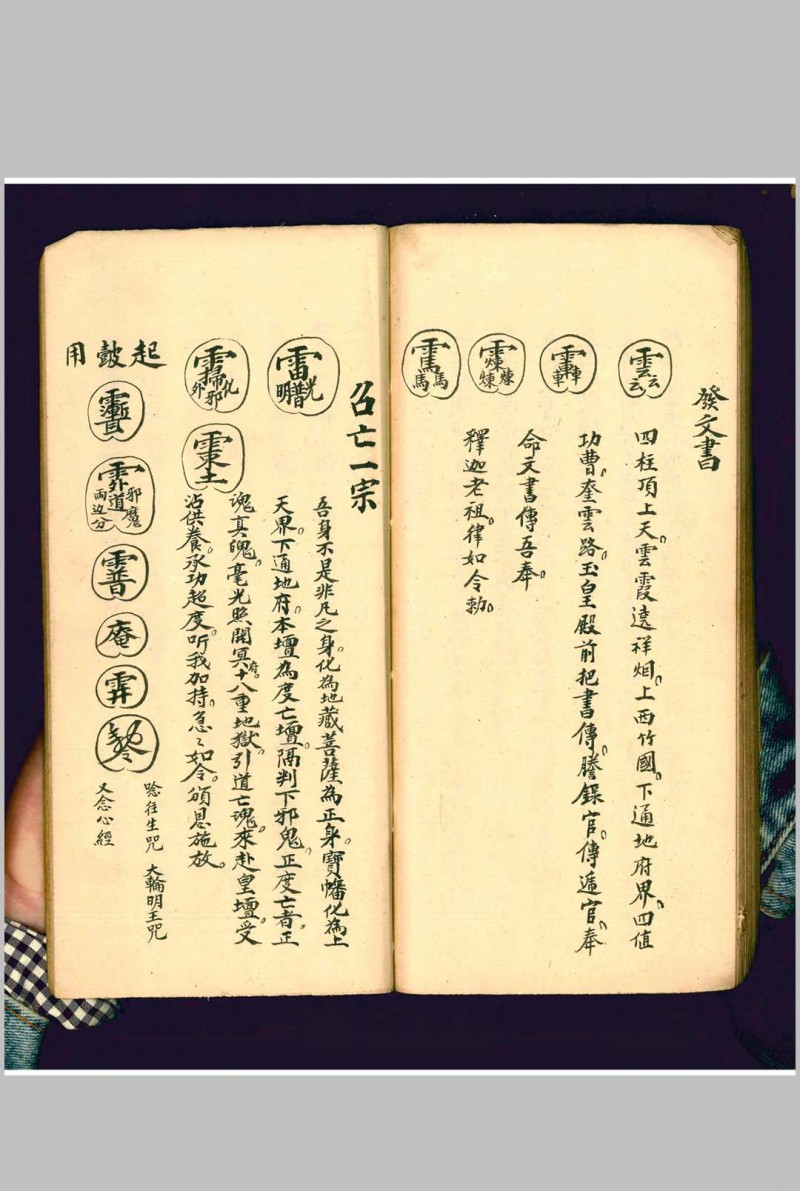 發文書
四柱頂上天。雲霞遠祥烟。上西竹國。下通地府界。四值
功曹。奎雲路。玉皇殿前把書傳。謄錄官。傳遞官。奉
命文書傳吾奉。
釋迦老祖。律如令勅。
召亡一宗
吾身不是非凡之身。化為地藏菩薩為正身。寶幡化為上
天界。下通地府。本壇為度亡壇。隔判下邪鬼。正度亡者。正
魂真魄。毫光照開冥府。十八重地獄。引道亡魂。來赴皇壇。受
沾供養。承功超度。听我加持。急々如令。頒恩施放。
起皷用
唸往生咒 大輪明王咒
又念心經